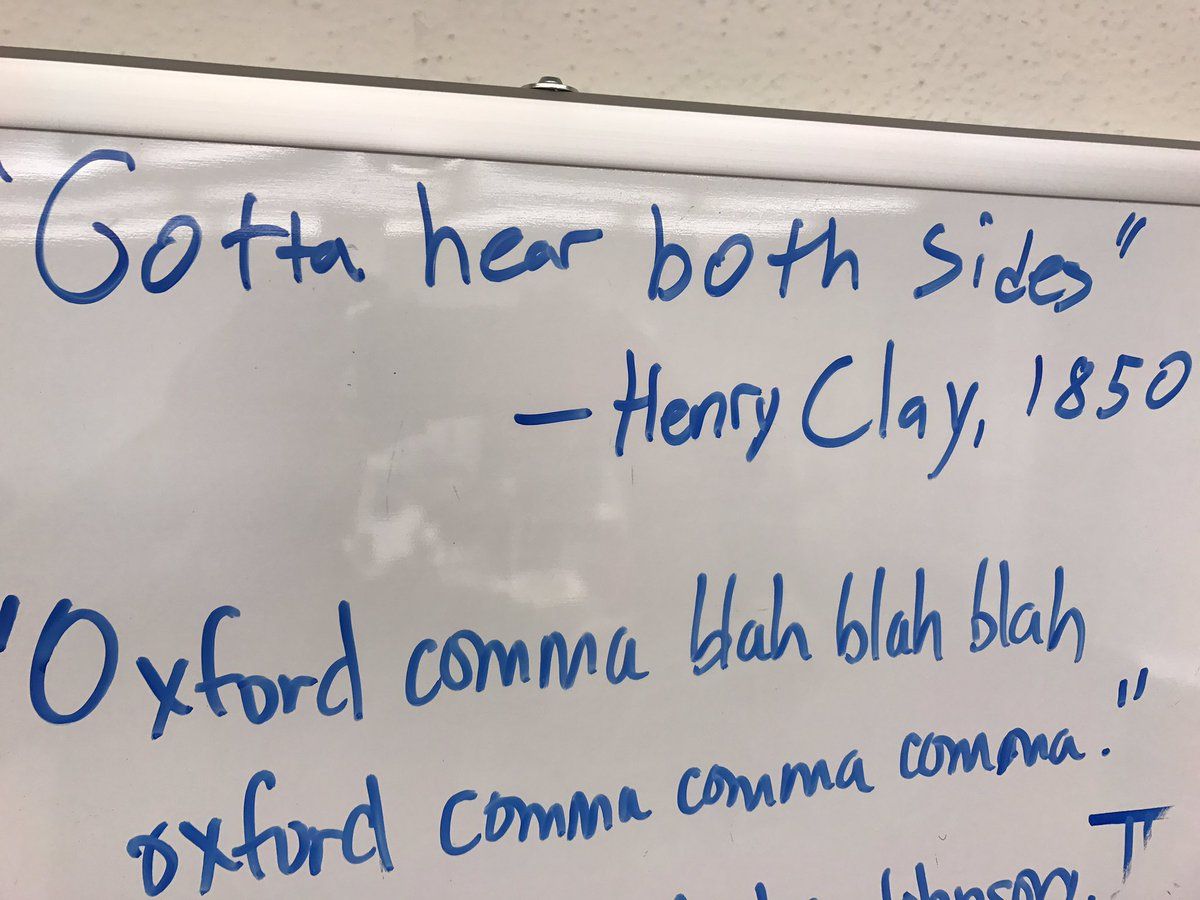 "Gotta hear both sides"
— Henry Clay, 1850
"Oxford comma blah blah blah
oxford comma comma comma."
Johnson,